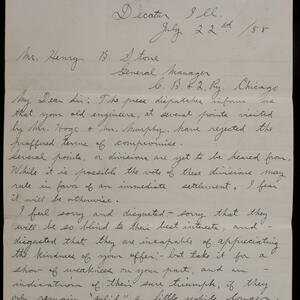 Decatur Ill.
July 22nd /88
Mr. Henry B. Stone
General Manager
C. B & Q. Ry. Chicago
My Dear Sir: The press dispatches inform us
that your old engineers, at several points visited
by Mr. Hoge & Mr. Murphy, have rejected the
proffered terms of compromise.
Several points, or divisions are yet to be heard from.
While it is possible the vote of these divisions may
rule in favor of an immediate settlement, I fear
it will be otherwise.
I feel sorry and disgusted - sorry that they
will be so blind to their best interest, and
disgusted that they are incapable of appreciating
the kindness of your offer; but take it for a
show of weakness on your part, and an
indication of their sure triumph, if they
only remain "solid" a little while longer.